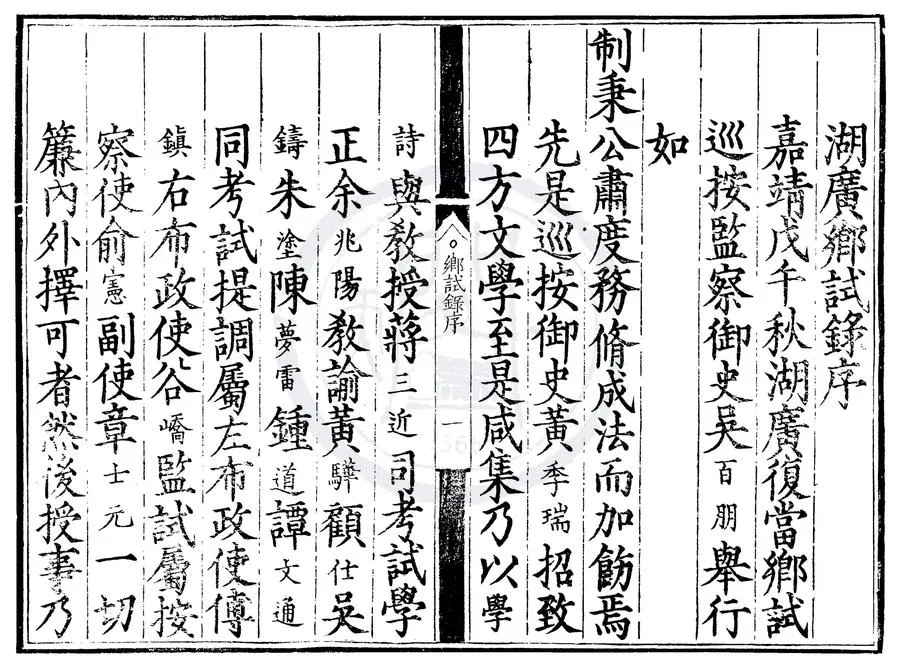 湖廣鄉試錄序
嘉靖戊午秋湖廣復當鄉試
巡按監察御史吳百朋舉行
如
制秉公肅度務脩成法而加飭焉
先是巡按御史黃季瑞招致
四方文學至是咸集乃以學
鄉試錄序 一
詩與教授蔣三近同考試學
正余兆陽教諭黃驊顧仕吳
鑄朱塗陳夢雷鍾道譚文通
同考試提調屬左布政使傅
鎮右布政使谷嶠監試屬按
察使俞憲副使章士元一切
簾內外擇可者然後授事乃